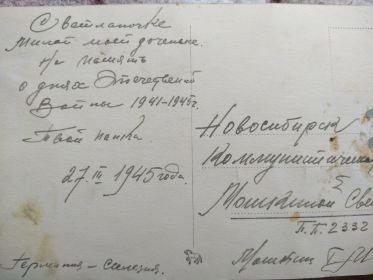 Светланочке
Милой моей доченьке.
На память
о днях Отечественной
Войны 1941-1945г.
Твой папка
27.III 1945 года.
Германия - Силезия.
Новосибирск
Коммунистическая
Мошкиной Све
П.П. 2332